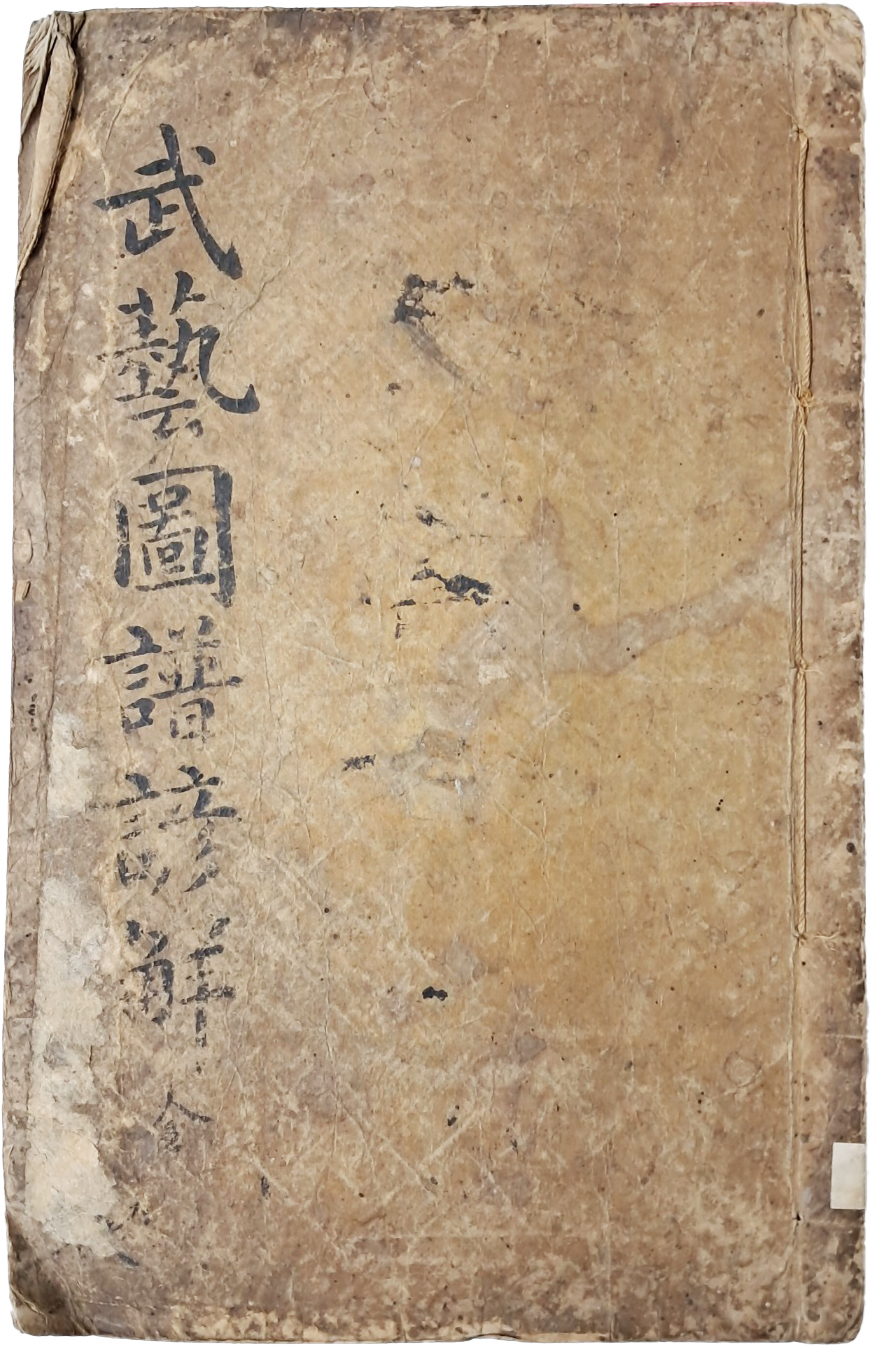 武藝圖譜諺解 全